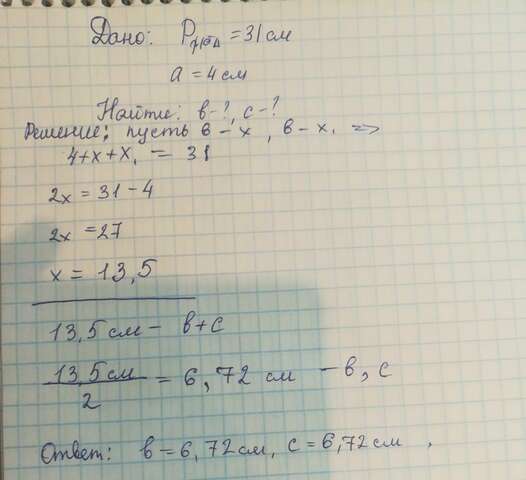 Дано: Pр/бΔ = 31 см
a = 4 см
Найти: в-?, с-?
Решение: пусть в - х, в - х, =>
4+х+х, = 31
2х = 31 - 4
2х = 27
х = 13,5
13,5 см - в+с
13,5 см / 2 = 6,72 см - в, с
Ответ: в = 6,72 см, с = 6,72 см,